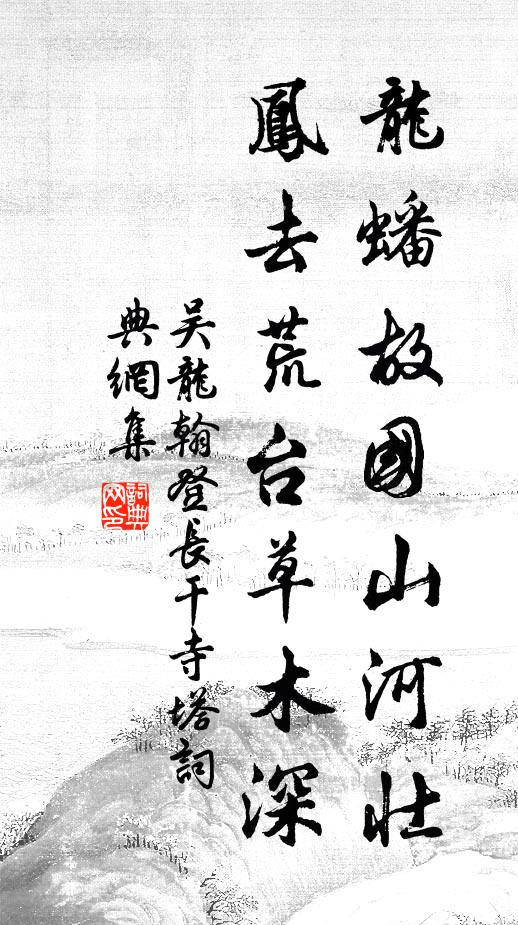 龍蟠故國山河壯
鳳去荒台草木深
吳龍翰登長干寺塔詞
典網集
詞典網印